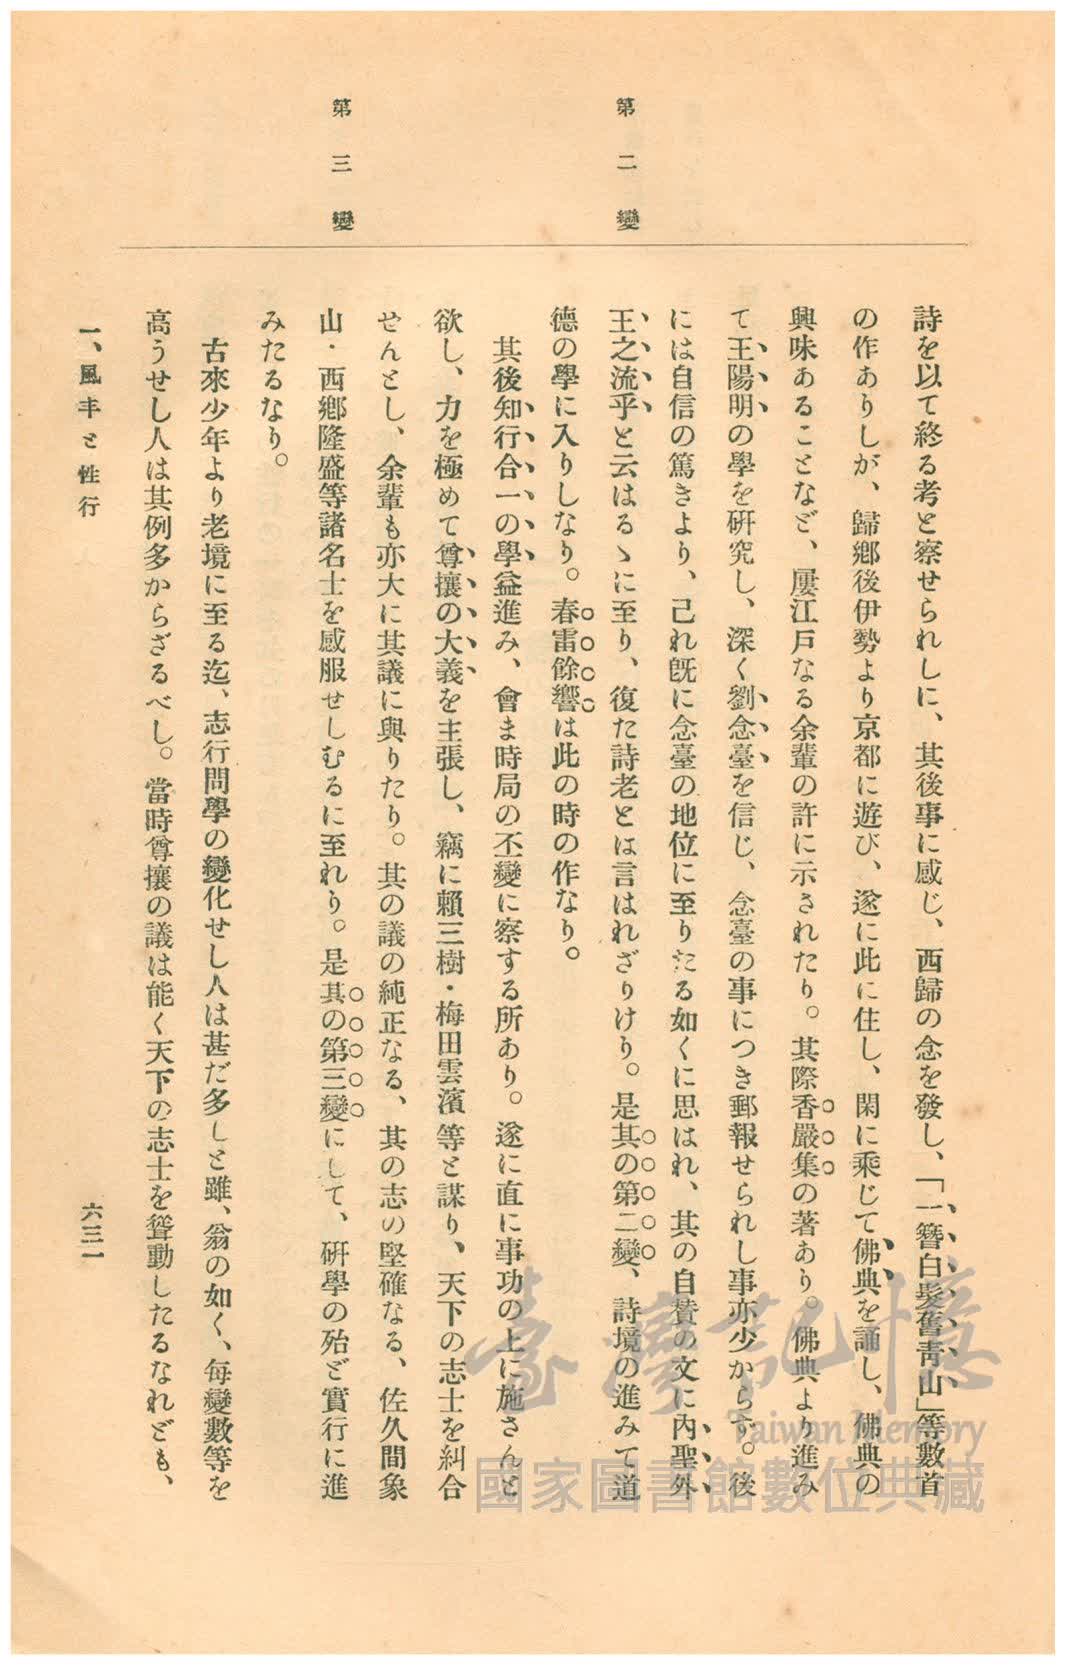 第二變
第三變
詩を以て終る考と察せられしに、其後事に感じ、西歸の念を發し、「一簪白髮舊靑山」等數首
の作ありしが、歸鄕後伊勢より京都に遊び、遂に此に住し、閑に乘じて佛典を誦し、佛典の
興味あることなど、屢江戶なる余輩の許に示されたり。其際香嚴集の著あり。佛典より進み
て王陽明の學を硏究し、深く劉念臺を信じ、念臺の事につき郵報せられし事亦少からず。後
には自信の篤きより、己れ旣に念臺の地位に至りたる如くに思はれ、其の自贊の文に內聖外
王之流乎と云はるゝに至り、復た詩老とは言はれざりけり。是其の第二變、詩境の進みて道
德の學に入りしなり。春雷餘響は此の時の作なり。
其後知行合一の學益進み、會ま時局の丕變に察する所あり。遂に直に事功の上に施さんと
欲し、力を極めて尊攘の大義を主張し、竊に賴三樹・梅田雲濱等と謀り、天下の志士を糾合
せんとし、余輩も亦大に其議に與りたり。其の議の純正なる、其の志の堅確なる、佐久間象
山・西鄕隆盛等諸名士を感服せしむるに至れり。是其の第三變にして、硏學の殆ど實行に進
みたるなり。
古來少年より老境に至る迄、志行問學の變化せし人は甚だ多しと雖、翁の如く、每變數等を
高うせし人は其例多からざるべし。當時尊攘の議は能く天下の志士を聳動したるなれども、
一、風丰と性行
六三一
臺灣記憶
Taiwan Memory
國家圖書館數位典藏